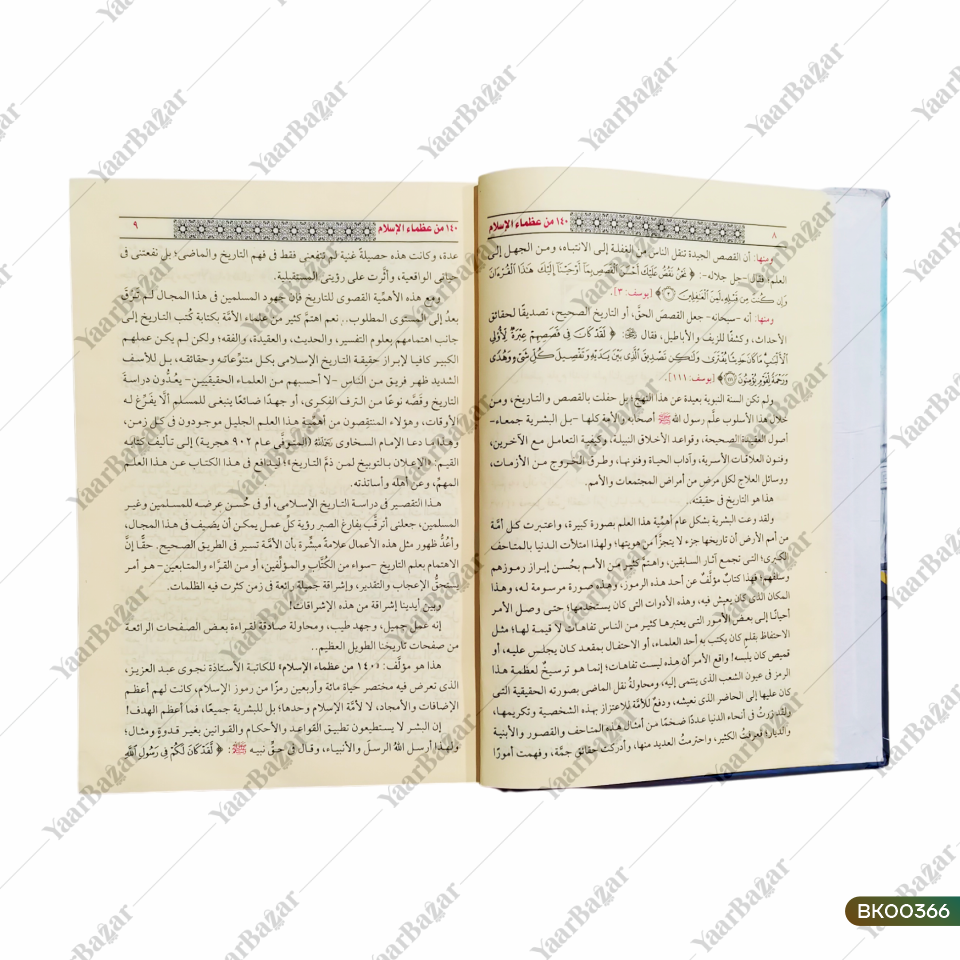 ٨
١٤٠ من عظماء الإسلام
ومنها: أن القصص الجيدة تنقل الناس من الغفلة إلى الانتباه، ومن الجهل إلى
العلم؛ فقال -جل جلاله-: ﴿ نَحْنُ نَقُصُّ عَلَيْكَ أَحْسَنَ الْقَصَصِ بِمَا أَوْحَيْنَا إِلَيْكَ هَٰذَا الْقُرْءَانَ
وَإِن كُنتَ مِن قَبْلِهِ لَمِنَ الْغَافِلِينَ ﴾ [يوسف: ٣].
ومنها: أنه -سبحانه- جعل القصصَ الحقَّ، أو التاريخ الصحيح، تصديقًا لحقائق
الأحداث، وكشفًا للزيف والأباطيل، فقال ﷻ: ﴿ لَقَدْ كَانَ فِي قَصَصِهِمْ عِبْرَةٌ لِّأُولِي
الْأَلْبَٰبِ مَا كَانَ حَدِيثًا يُفْتَرَىٰ وَلَٰكِن تَصْدِيقَ الَّذِي بَيْنَ يَدَيْهِ وَتَفْصِيلَ كُلِّ شَيْءٍ وَهُدًى
وَرَحْمَةً لِّقَوْمٍ يُؤْمِنُونَ ﴿١١١﴾ ﴾ [يوسف: ١١١].
ولم تكن السنة النبوية بعيدة عن هذا النهج؛ بل حفلت بالقصص والتاريخ، ومن
خلال هذا الأسلوب علَّم رسول الله ﷺ أصحابه والأمة كلها -بل البشرية جمعاء-
أصول العقيدة الصحيحة، وقواعد الأخلاق النبيلة، وكيفية التعامل مع الآخرين،
وفنون العلاقات الأسرية، وآداب الحياة وفنونها، وطرق الخروج من الأزمات،
ووسائل العلاج لكل مرض من أمراض المجتمعات والأمم.
هذا هو التاريخ في حقيقته..
ولقد وعت البشرية بشكل عام أهمِّية هذا العلم بصورة كبيرة، واعتبرت كل أمَّة
من أمم الأرض أن تاريخها جزء لا يتجزَّأ من هويتها؛ ولهذا امتلأت الدنيا بالمتاحف
الكبرى؛ التي تجمع آثار السابقين، واهتمَّ كثير من الأمم بحُسن إبراز رموزهم
وسلفهم؛ فهذا كتابٌ مؤلَّفٌ عن أحد هذه الرموز، وهذه صورة مرسومة له، وهذا
المكان الذي كان يعيش فيه، وهذه الأدوات التي كان يستخدمها؛ حتى وصل الأمر
أحيانًا إلى بعض الأمور التي يعتبرها كثير من الناس تفاهات لا قيمة لها؛ مثل
الاحتفاظ بقلم كان يكتب به أحد العلماء، أو الاحتفال بمقعد كان يجلس عليه، أو
قميص كان يلبسه! واقع الأمر أن هذه ليست تفاهات؛ إنما هو ترسيخٌ لعظمة هذا
الرمز في عيون الشعب الذي ينتمي إليه، ومحاولةُ نقل الماضي بصورته الحقيقية التي
كان عليها إلى الحاضر الذي نعيشه، ودفعٌ للأمَّة للاعتزاز بهذه الشخصية وتكريمها،
ولقد زرتُ في أنحاء الدنيا عددًا ضخمًا من أمثال هذه المتاحف والقصور والأبنية
والديار؛ فعرفتُ الكثير، واحترمتُ العديد منها، وأدركت حقائق جمَّة، وفهمت أمورًا
١٤٠ من عظماء الإسلام
٩
عدة، وكانت هذه حصيلةً غنية لم تنفعني فقط في فهم التاريخ والماضي؛ بل نفعتني في
حياتي الواقعية، وأثَّرت على رؤيتي المستقبلية.
ومع هذه الأهمِّية القصوى للتاريخ فإن جهود المسلمين في هذا المجال لم تَرْقَ
بعدُ إلى المستوى المطلوب.. نعم اهتمَّ كثير من علماء الأمَّة بكتابة كُتب التاريخ إلى
جانب اهتمامهم بعلوم التفسير، والحديث، والعقيدة، والفقه؛ ولكن لم يكن عملهم
الكبير كافيا لإبراز حقيقة التاريخ الإسلامي بكل متنوِّعاته وحقائقه، بل للأسف
الشديد ظهر فريق من الناس -لا أحسبهم من العلماء الحقيقيين- يعُدُّون دراسةَ
التاريخ وقصَّه نوعًا من الترف الفكري، أو جهدًا ضائعًا ينبغي للمسلم ألَّا يفَرِّغ له
الأوقات، وهؤلاء المنتقِصون من أهمِّية هذا العلم الجليل موجودون في كل زمن،
وهذا ما دعا الإمام السخاوي رحمه الله (المتوفَّى عام ٩٠٢ هجرية) إلى تأليف كتابه
القيم: «الإعلان بالتوبيخ لمن ذمَّ التاريخ»؛ ليدافع في هذا الكتاب عن هذا العلم
المهمِّ، وعن أهله وأساتذته.
هذا التقصير في دراسة التاريخ الإسلامي، أو في حُسن عرضه للمسلمين وغير
المسلمين، جعلني أترقَّب بفارغ الصبر رؤية كلِّ عمل يمكن أن يضيف في هذا المجال،
وأعُدُّ ظهور مثل هذه الأعمال علامةً مبشِّرة بأن الأمَّة تسير في الطريق الصحيح. حقًّا إنَّ
الاهتمام بعلم التاريخ -سواء من الكُتَّاب والمؤلِّفين، أو من القرَّاء والمتابعين- هو أمر
يستحقُّ الإعجاب والتقدير، وإشراقة جميلة رائعة في زمن كثرت فيه الظلمات.
وبين أيدينا إشراقة من هذه الإشراقات!
إنه عمل جميل، وجهد طيب، ومحاولة صادقة لقراءة بعض الصفحات الرائعة
من صفحات تاريخنا الطويل العظيم..
هذا هو مؤلَّف: «١٤٠ من عظماء الإسلام» للكاتبة الأستاذة نجوى عبد العزيز،
الذي تعرض فيه مختصر حياة مائة وأربعين رمزًا من رموز الإسلام، كانت لهم أعظم
الإضافات والأمجاد، لا لأمَّة الإسلام وحدها؛ بل للبشرية جميعًا، فما أعظم الهدف!
إن البشر لا يستطيعون تطبيق القواعد والأحكام والقوانين بغير قدوةٍ ومثال؛
ولهذا أرسل اللهُ الرسلَ والأنبياء، وقال في حقِّ نبيه ﷺ: ﴿ لَّقَدْ كَانَ لَكُمْ فِي رَسُولِ اللَّهِ
BK00366
YaarBazar